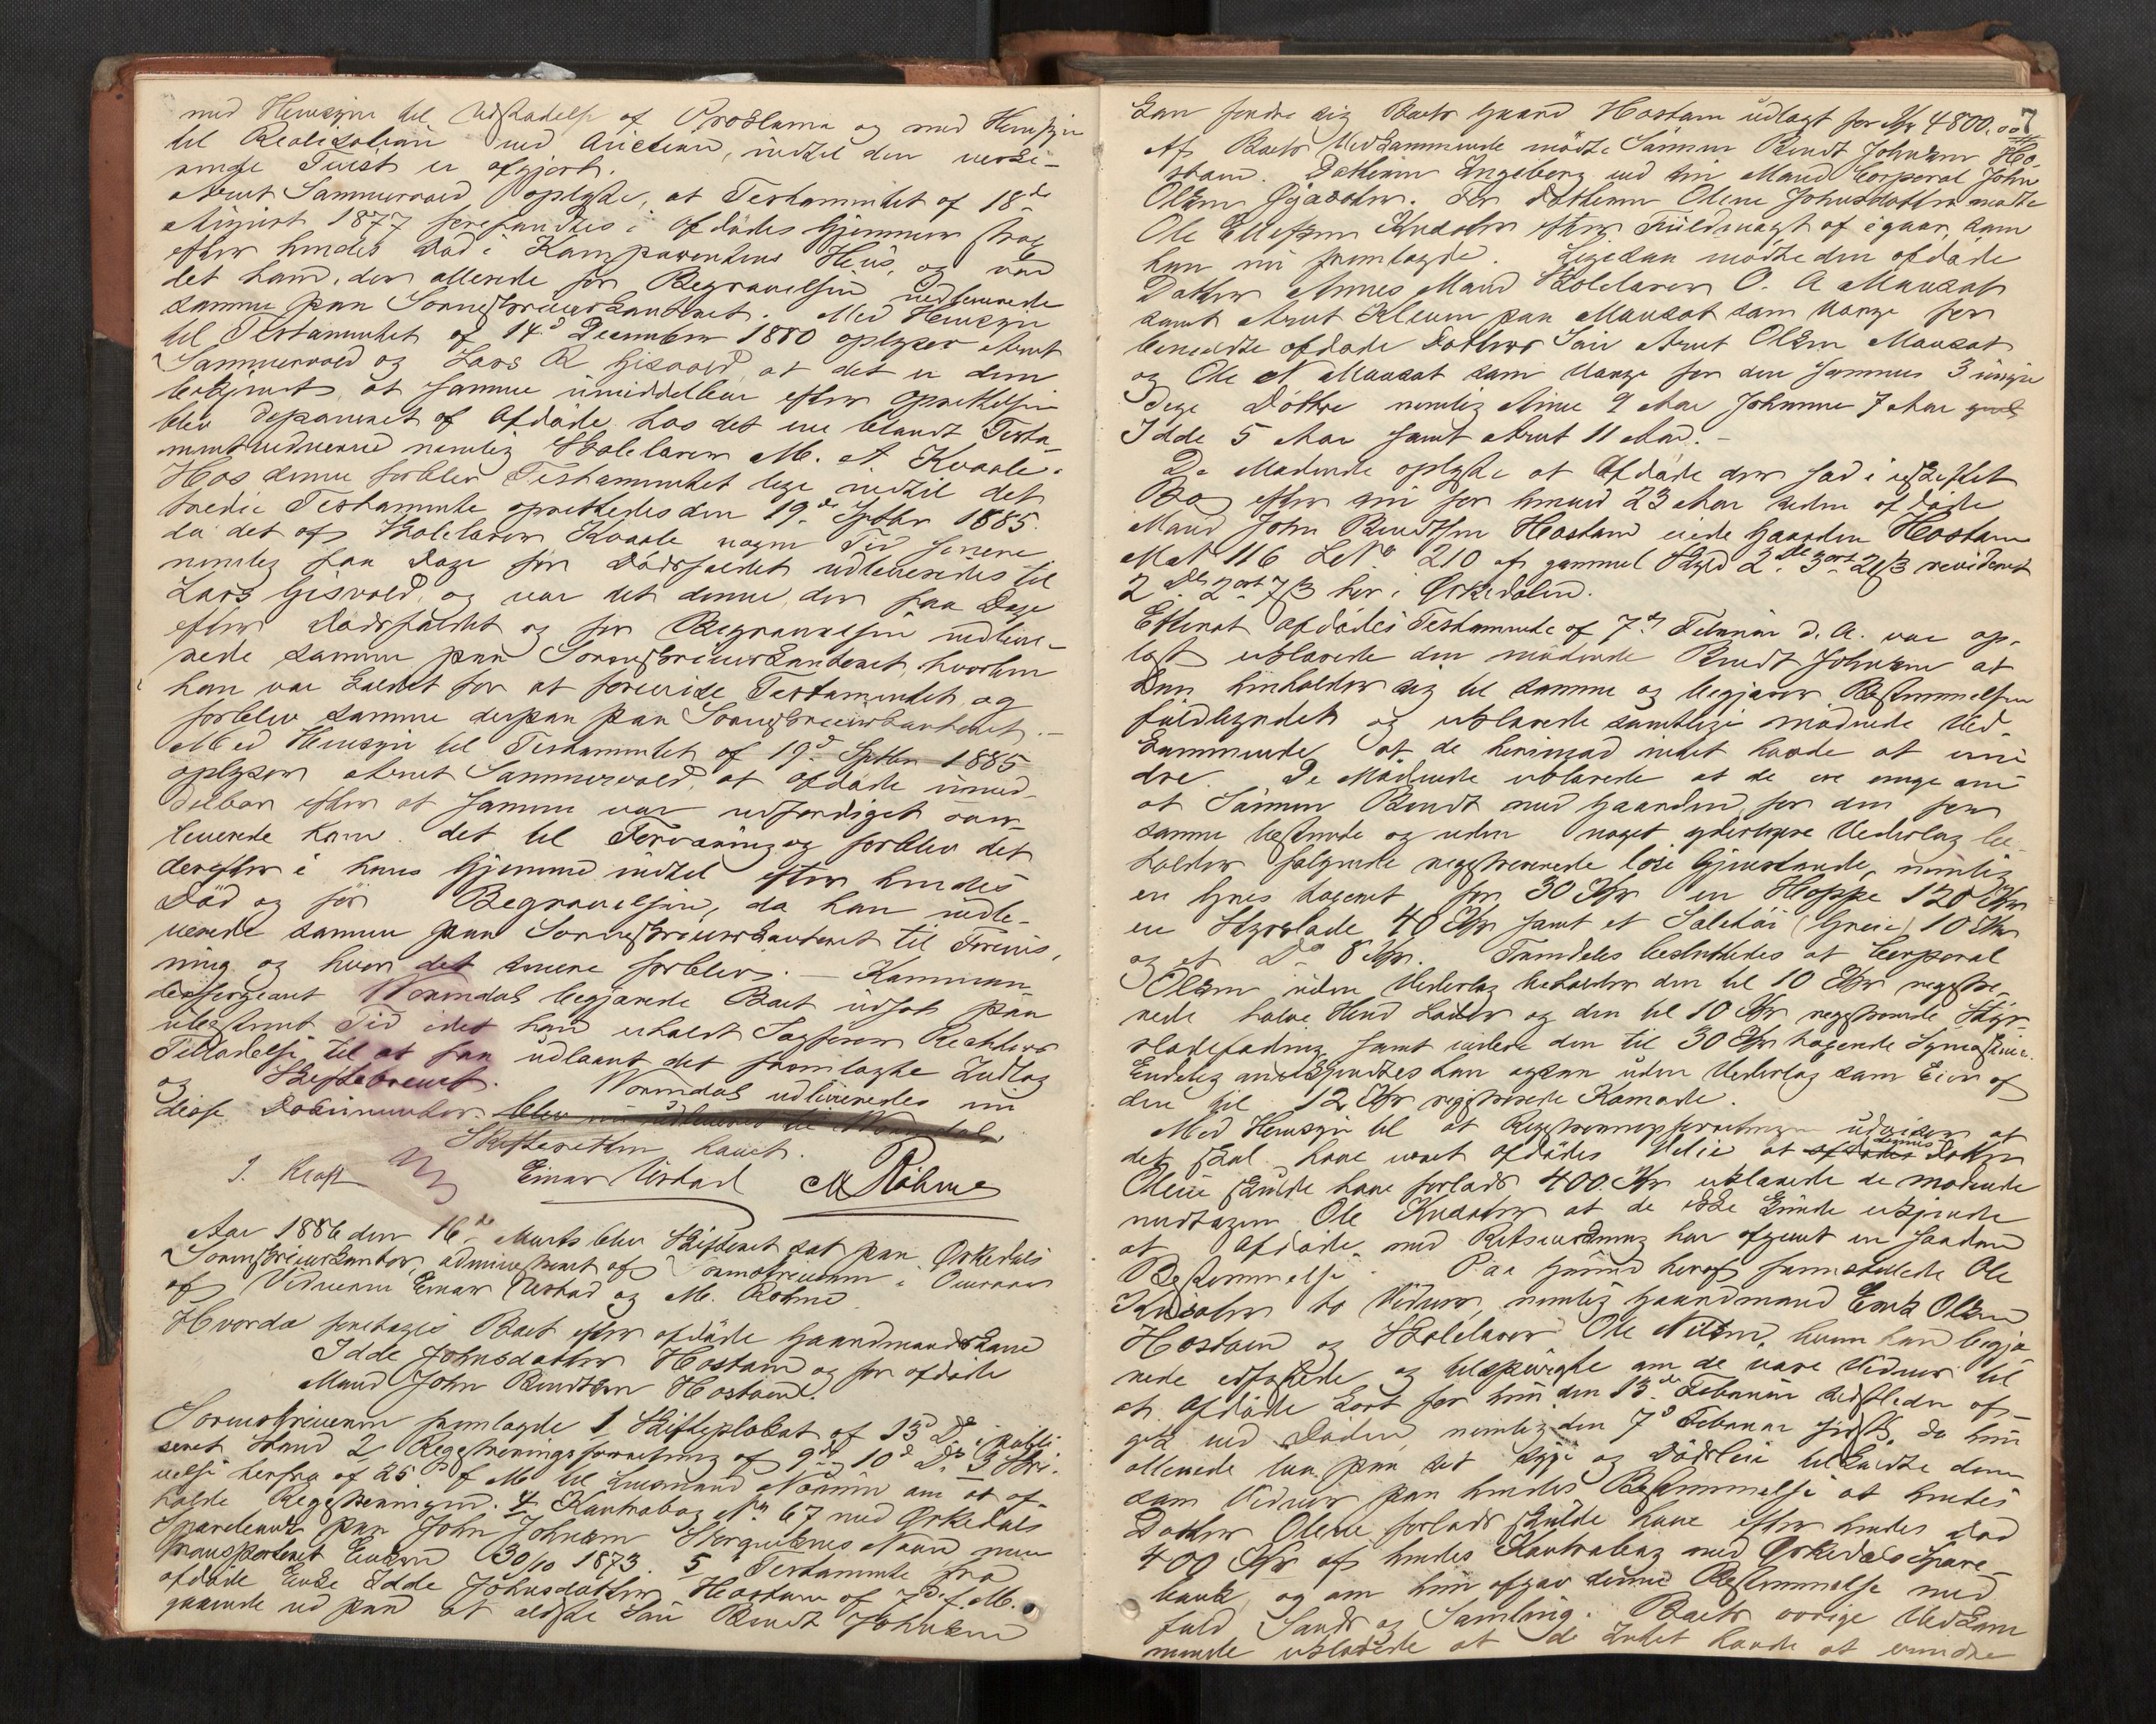 med Hensyn til Udstedelse af Proklama og med Hensyn
til Realisation ved Auction, indtil den verse-
rende Tvist er afgjort.
Arnt Sammervold oplyste, at Testamentet af 18de
August 1877 forefandtes i Afdødes Gjemmer strax
efter hendes Død i Komparentens Hus, og var
det ham, der allerede før Begravelsen indleverede
samme paa Sorenskriverkontoret. Med Hensyn
til Testamentet af 14d December 1880 oplyser Arnt
Sammervold og Lars R Gisvold, at det er dem
bekjendt, at samme umiddelbar efter Oprettelsen
blev deponeret af Afdøde hos det ene blandt Testa-
mentvidnerne nemlig Skolelærer M. A. Kvaale.
Hos denne forblev Testamentet lige indtil det
tredie Testamente oprettedes den 19de Septbr 1885.
da det af Skolelærer Kvaale nogen Tid senere
nemlig faa Dage før Dødsfaldet udleveredes til
Lars Gisvold, og var det denne, der faa Dage
efter Dødsfaldet og før Begravelsen indleve-
rede samme paa Sorenskriverkontoret, hvorhen
han var kaldet for at forevise Testamentet, og
forblev samme derpaa paa Sorenskriverkontoret. –
Med Hensyn til Testamentet af 19d Septbr 1885
oplyser Arnt Sammervold, at Afdøde umid-
delbar efter at samme var udfærdiget over-
leverede ham det til Forvaring og forblev det
derefter i hans Gjemme indtil efter hendes
Død og før Begravelsen, da han indle-
verede samme paa Sorenskriverkontoret til Forevis-
ning og hvor det senere forblev. – Komman-
dersergeant Wormdal begjærede Boet udsat paa
ubestemt Tid idet han erholdt Sagfører Richters
Tilladelse til at faa udlaant det fremlagte Indlæg
og Skiftebrevet. Wormdal udleveredes nu
disse Documenter. blev nu udleveret til Wormdal.
Skifteretten hævet.
J. Kraft Einar Urstad M Røhme
Aar 1886 den 16de Marts blev Skifteret sat paa Orkedals
Sorenskriverkontor, administreret af Sorenskriveren i Overvær
af Vidnerne Einar Urstad og M. Røhme
Hvorda foretoges Boet efter afdøde Gaardmandskone
Idde Johnsdatter Hostom og før afdøde
Mand John Bendtsen Hostom.
Sorenskriveren fremlagde 1, Skifteplakat af 13d Ds i publi-
seret Stand 2 Registreringsforretning af 9d og 10d Ds 3 Skri-
velse herfra af 25d f M til Lensmand Norum om at af-
holde Registreringen. 4 Kontrabog No 67 med Orkedals
Sparebank paa John Johnsen Storgutenes Navn men
transporteret Enken 30/10 1873. 5 Testamente fra
afdøde Enke Idde Johnsdatter Hostom af 7d f. M.
gaaende ud paa at ældste Søn Bendt Johnsen
7
kan fordre sig Boets Gaard Hostom udlagt for Kr 4800,00
Af Boets Vedkommende mødte Sønnen Bendt Johnsen Ho-
stom. Datteren Ingeborg ved sin Mand Corporal John
Olsen. For Datteren Olene Johnsdatter mødte
Ole Ellefsen Kusæter efter Fuldmagt af igaar, som
han nu fremlagde. Ligesaa mødte den afdøde
Datter Annes Mand Skolelærer O. A Mausæt
samt Arnt Kleven paa Mausæt som Værge for
benævnte afdøde Datters Søn Arnt Olsen Mausæt
og Ole N Mausæt som Værge for den sammes 3 umyn-
dige Døttre nemlig Anne 9 Aar Johanne 7 Aar
Idde 5 Aar samt Arnt 11 Aar. –
De Mødende oplyste at Afdøde der sad i uskiftet
Bo efter sin for henved 23 Aar siden afdøde
Mand John Bendtsen Hostom eiede Gaarden Hostom
Mat N 116 L No 210 af gammel Skyld 2 Dl 3 ort 21 s revideret
2 Dl 2 ort 7 s her i Orkedalen.
Efterat Afdødes Testamente af 7d Februar d. A. var op-
læst erklærede den mødende Bendt Johnsen at
han henholder sig til samme og begjærer Bestemmelsen
fuldbyrdet og erklærede samtlige mødende Ved-
kommende at de herimod intet havde at erin-
dre. De Mødende erklærede at de ere enige om
at Sønnen Bendt med Gaarden for den for
samme bestemte og uden noget yderligere Vederlag be-
holder følgende registrerede løse Gjenstande, nemlig
en Grues takseret for 30 Kr en Hoppe 120 Kr
en Styrslade 40 Kr samt et Seletøi (Greie) 10 Kr
og et Do 8 Kr. Fremdeles besluttedes at Corporal
Olsen uden Vederlag beholder den til 10 Kr registre-
rede halve Hund Læder og den til 10 Kr registrerede Styr-
sladefading samt videre den til 30 Kr takserede Symaskine.
Endelig anerkjendtes han ogsaa uden Vederlag som Eier af
den til 12 Kr registrerede Komode.
Med Hensyn til at Registreringsforretningen udviser at
det skal have været Afdødes Vilie at afdødes hennes Datter
Olene skulde have forlods 400 Kr erklærede de mødende
undtagen Ole Kusæter at de ikke kunde erkjende
at Afdøde med Retsvirkning har afgivet en saadan
Bestemmelse. Paa Grund heraf fremstillede Ole
Kusæter to Vidner, nemlig Gaardmand Erik Olsen
Hostom og Skolelærer Ole Nilsen, hvem han begjæ-
rede edfæstede og tilspurgte om de vare Vidner til
at Afdøde kort før hun den 13de Februar sidstleden af-
gik ved Døden, nemlig den 7d Februar sidst, da hun
allerede laa paa sit Syge og Dødsleie tilkaldte dem
som Vidner paa hendes Bestemmelse at hendes
Datter Olene forlods skulde have efter hendes Død
400 Kr af hendes Kontrabog med Orkedals Spare-
bank, og om hun afgav denne Bestemmelse med
fuld Sands og Samling. Boets øvrige Vedkom
mende erklærede at de Intet havde at erindre